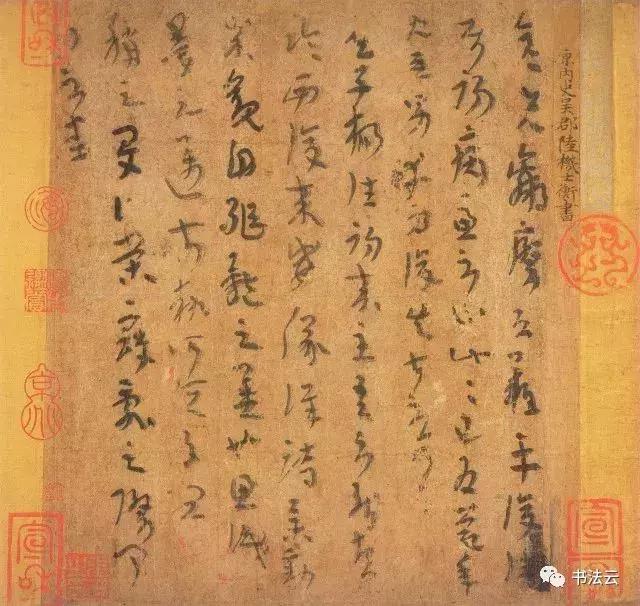 原內史吳郡陸機士衡書
彥先羸瘵恐難平復往屬
初病慮不止此此已為慶承
使唯男幸為復失前憂耳
吳子楊往初來主吾不能盡
臨西復來威儀詳跱舉動
成觀自軀體之美也思識
量之邁前勢所恒有宜
稱之夏伯榮寇亂之際聞
問不悉
书法云